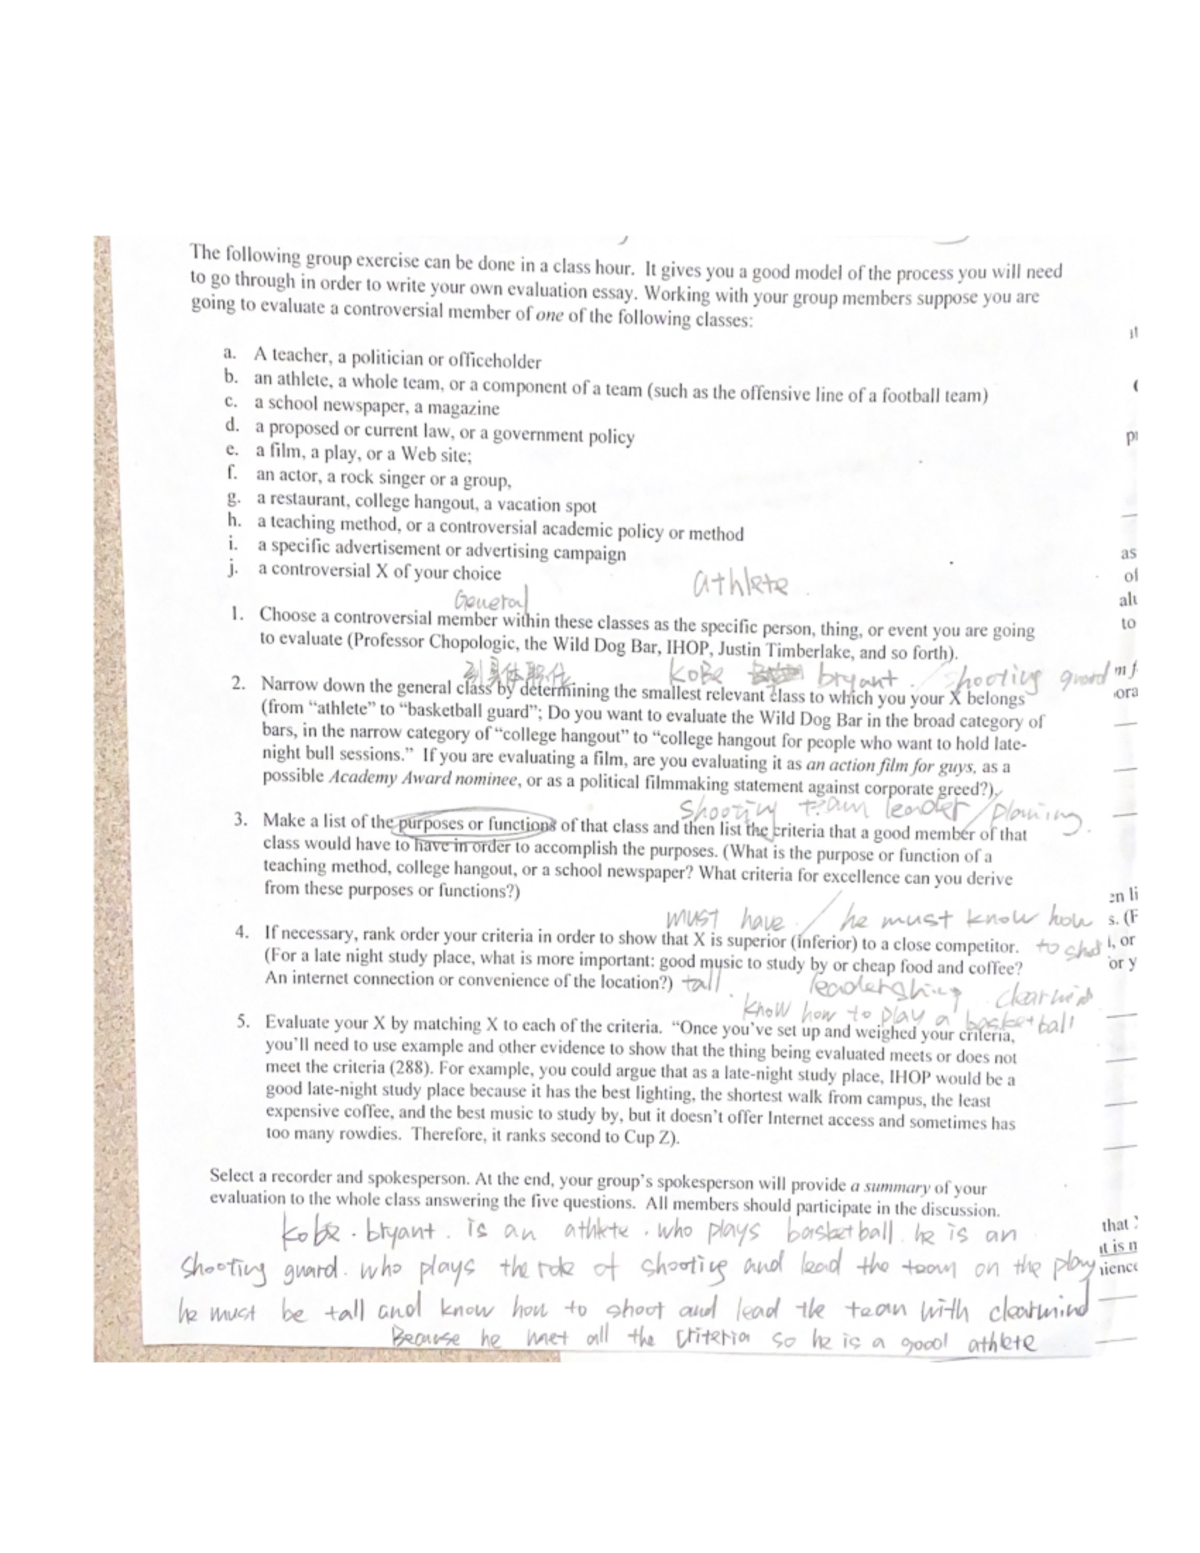 The following group exercise can be done in a class hour. It gives you a good model of the process you will need
to go through in order to write your own evaluation essay. Working with your group members suppose you are
going to evaluate a controversial member of one of the following classes:
a. A teacher, a politician or officeholder
b. an athlete, a whole team, or a component of a team (such as the offensive line of a football team)
c. a school newspaper, a magazine
d. a proposed or current law, or a government policy
e. a film, a play, or a Web site;
f. an actor, a rock singer or a group,
g. a restaurant, college hangout, a vacation spot
h. a teaching method, or a controversial academic policy or method
i. a specific advertisement or advertising campaign
j. a controversial X of your choice
athlete.
General
1. Choose a controversial member within these classes as the specific person, thing, or event you are going
to evaluate (Professor Chopologic, the Wild Dog Bar, IHOP, Justin Timberlake, and so forth).
到具体职位 KoBe bryant. / shooting guard
2. Narrow down the general class by determining the smallest relevant class to which you your X belongs
(from “athlete” to “basketball guard”; Do you want to evaluate the Wild Dog Bar in the broad category of
bars, in the narrow category of “college hangout” to “college hangout for people who want to hold late-
night bull sessions.” If you are evaluating a film, are you evaluating it as an action film for guys, as a
possible Academy Award nominee, or as a political filmmaking statement against corporate greed?).
Shooting team leader / planing.
3. Make a list of the purposes or functions of that class and then list the criteria that a good member of that
class would have to have in order to accomplish the purposes. (What is the purpose or function of a
teaching method, college hangout, or a school newspaper? What criteria for excellence can you derive
from these purposes or functions?)
must have. / he must know how
4. If necessary, rank order your criteria in order to show that X is superior (inferior) to a close competitor. to
(For a late night study place, what is more important: good music to study by or cheap food and coffee?
An internet connection or convenience of the location?) tall.
know how to play a basketball
5. Evaluate your X by matching X to each of the criteria. “Once you’ve set up and weighed your criteria,
you’ll need to use example and other evidence to show that the thing being evaluated meets or does not
meet the criteria (288). For example, you could argue that as a late-night study place, IHOP would be a
good late-night study place because it has the best lighting, the shortest walk from campus, the least
expensive coffee, and the best music to study by, but it doesn’t offer Internet access and sometimes has
too many rowdies. Therefore, it ranks second to Cup Z).
Select a recorder and spokesperson. At the end, your group’s spokesperson will provide a summary of your
evaluation to the whole class answering the five questions. All members should participate in the discussion.
kobe. bryant. is an athlete. who plays basketball he is an
shooting guard. who plays the role of shooting and lead the team on the play
he must be tall and know how to shoot and lead the team with clearmind
Because he met all the criteria so he is a good athlete